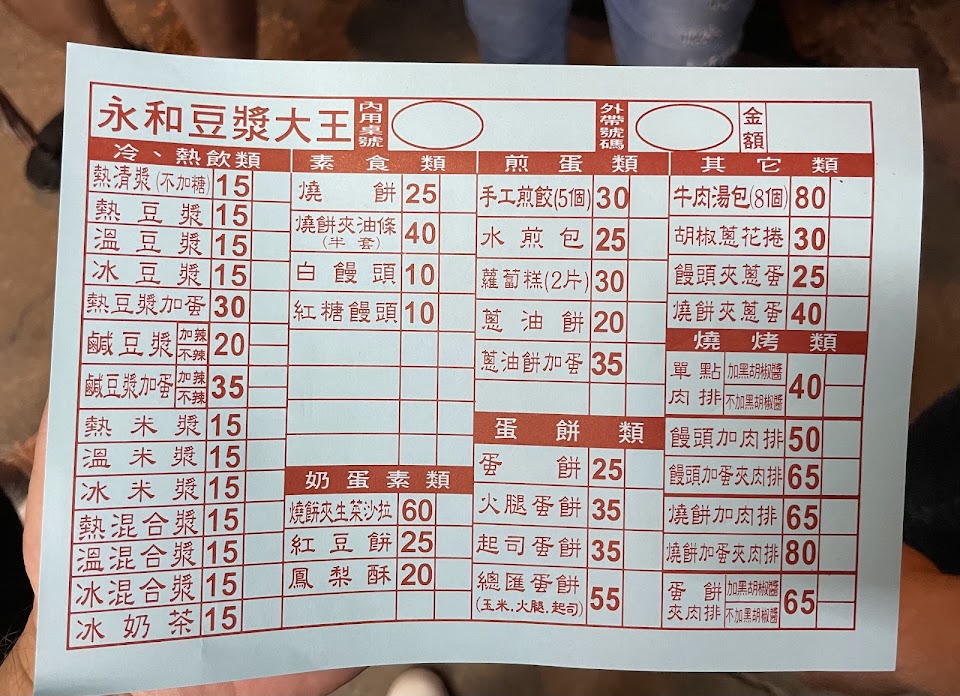 永和豆漿大王 內用桌號 外帶號碼 金額
冷、熱飲類
熱清漿(不加糖) 15
熱豆漿 15
溫豆漿 15
冰豆漿 15
熱豆漿加蛋 30
鹹豆漿 加辣 不辣 20
鹹豆漿加蛋 加辣 不辣 35
熱米漿 15
溫米漿 15
冰米漿 15
熱混合漿 15
溫混合漿 15
冰混合漿 15
冰奶茶 15
素食類
燒餅 25
燒餅夾油條 40
(半套)
白饅頭 10
紅糖饅頭 10
奶蛋素類
燒餅夾生菜沙拉 60
紅豆餅 25
鳳梨酥 20
煎蛋類
手工煎餃(5個) 30
水煎包 25
蘿蔔糕(2片) 30
蔥油餅 20
蔥油餅加蛋 35
蛋餅類
蛋餅 25
火腿蛋餅 35
起司蛋餅 35
總匯蛋餅 55
(玉米.火腿.起司)
其它類
牛肉湯包(8個) 80
胡椒蔥花捲 30
饅頭夾蔥蛋 25
燒餅夾蔥蛋 40
燒烤類
單點肉排 加黑胡椒醬 不加黑胡椒醬 40
饅頭加肉排 50
饅頭加蛋夾肉排 65
燒餅加肉排 65
燒餅加蛋夾肉排 80
蛋餅夾肉排 加黑胡椒醬 不加黑胡椒醬 65